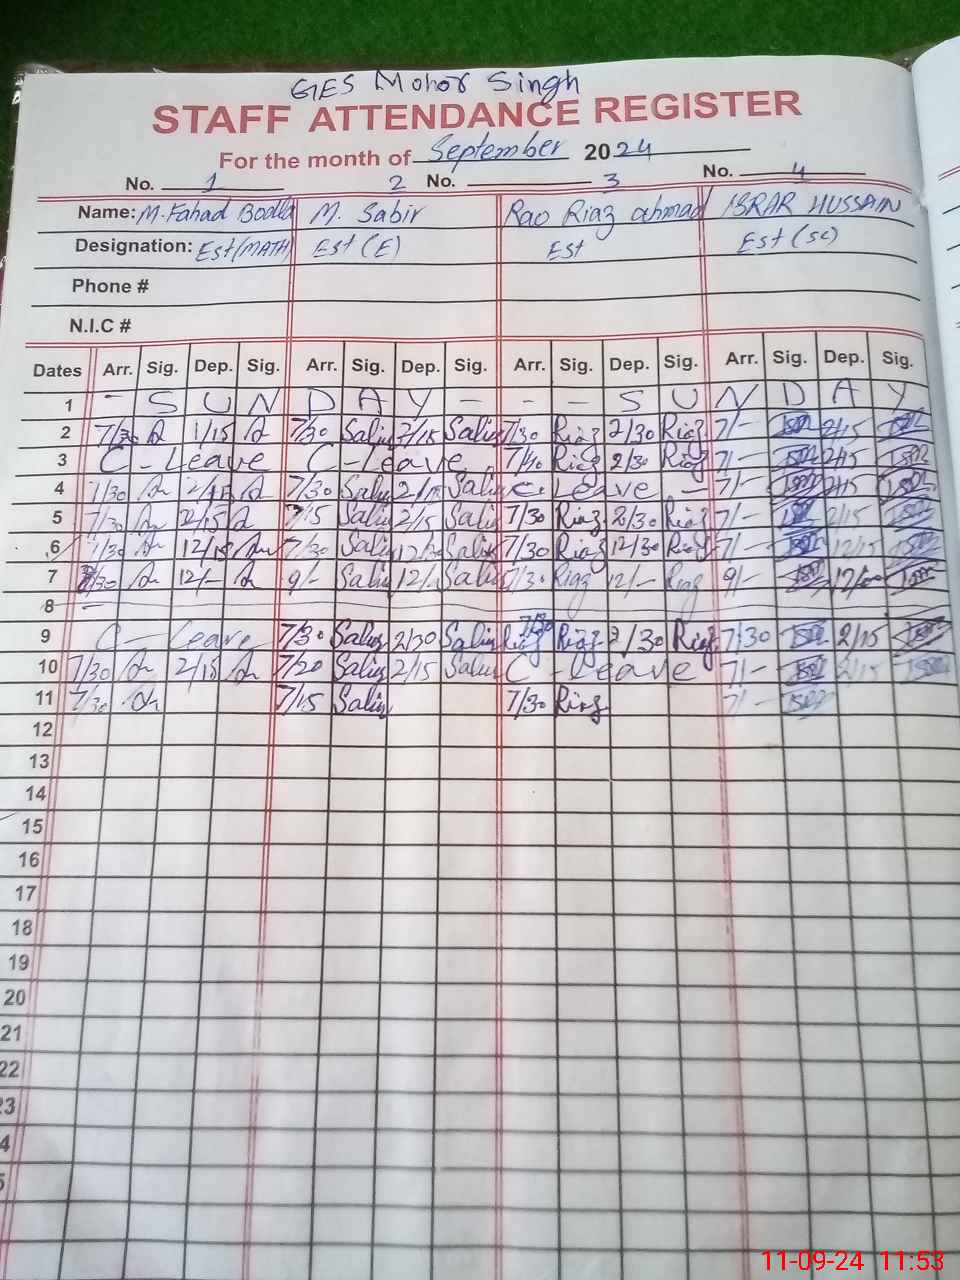 GES Mohor Singh
STAFF ATTENDANCE REGISTER
For the month of September 2024
No. 1 2 No. 3 No. 4
Name: M. Fahad Bodla M. Sabir Rao Riaz ahmad ISRAR HUSSAIN
Designation: Est (MATH) Est (E) Est Est (SC)
Phone #
N.I.C #
Dates Arr. Sig. Dep. Sig. Arr. Sig. Dep. Sig. Arr. Sig. Dep. Sig. Arr. Sig. Dep. Sig.
1 - S U N D A Y - - - S U N D A Y
2 7/30 1/15 7/30 2/15 7/30 Riaz 2/30 Riaz 7/- 2/15
3 C - Leave C - Leave 7/40 Riaz 2/30 Riaz 7/- 2/15
4 7/30 2/15 7/30 2/15 C - Leave - 7/- 2/15
5 7/30 2/15 7/15 2/15 7/30 Riaz 2/30 Riaz 7/- 2/15
6 7/30 12/15 7/30 12/30 7/30 Riaz 12/30 Riaz 7/- 12/15
7 7/30 12/- 9/- 7/30 Riaz 12/- Riaz 9/- 12/00
8
9 C - Leave 7/30 2/30 7/30 Riaz Riaz 2/30 Riaz 7/30 2/15
10 7/30 2/15 7/20 2/15 C - Leave 7/- 2/15
11 7/30 7/15 7/30 Riaz 7/-
12
13
14
15
16
17
18
19
20
21
22
23
4
5
11-09-24 11:53